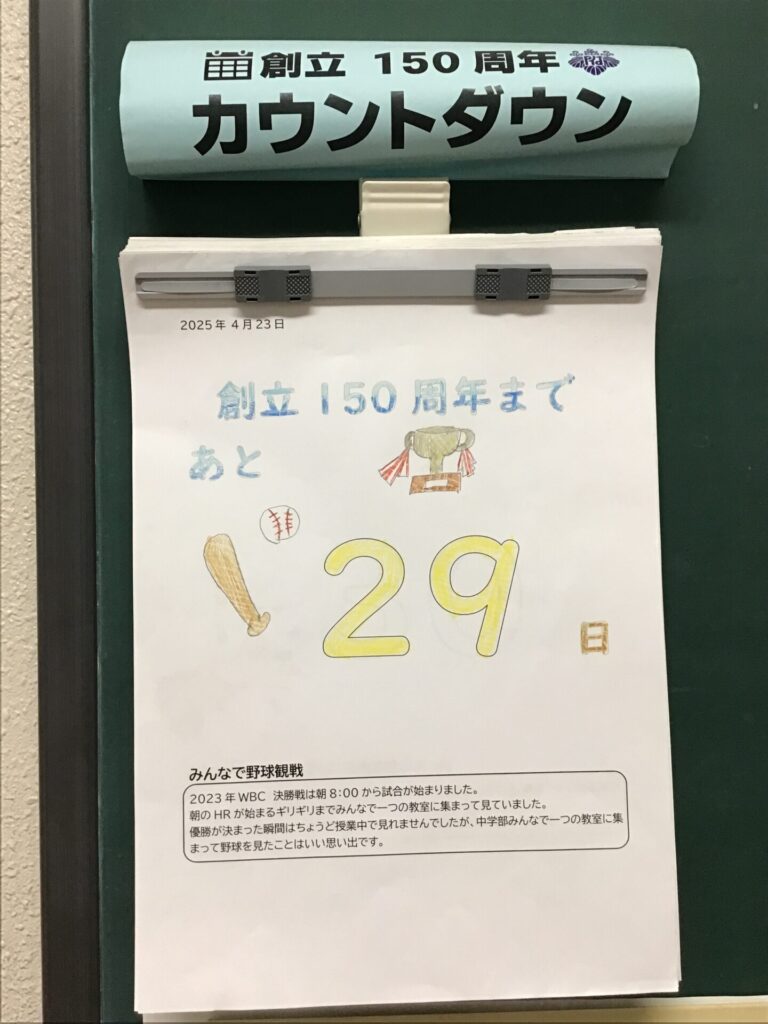 創立 150 周年
カウントダウン
2025年 4月23日
創立150周年まで
あと
29
日
みんなで野球観戦
2023年WBC 決勝戦は朝8:00から試合が始まりました。
朝のHRが始まるギリギリまでみんなで一つの教室に集まって見ていました。
優勝が決まった瞬間はちょうど授業中で見れませんでしたが、中学部みんなで一つの教室に集
まって野球を見たことはいい思い出です。